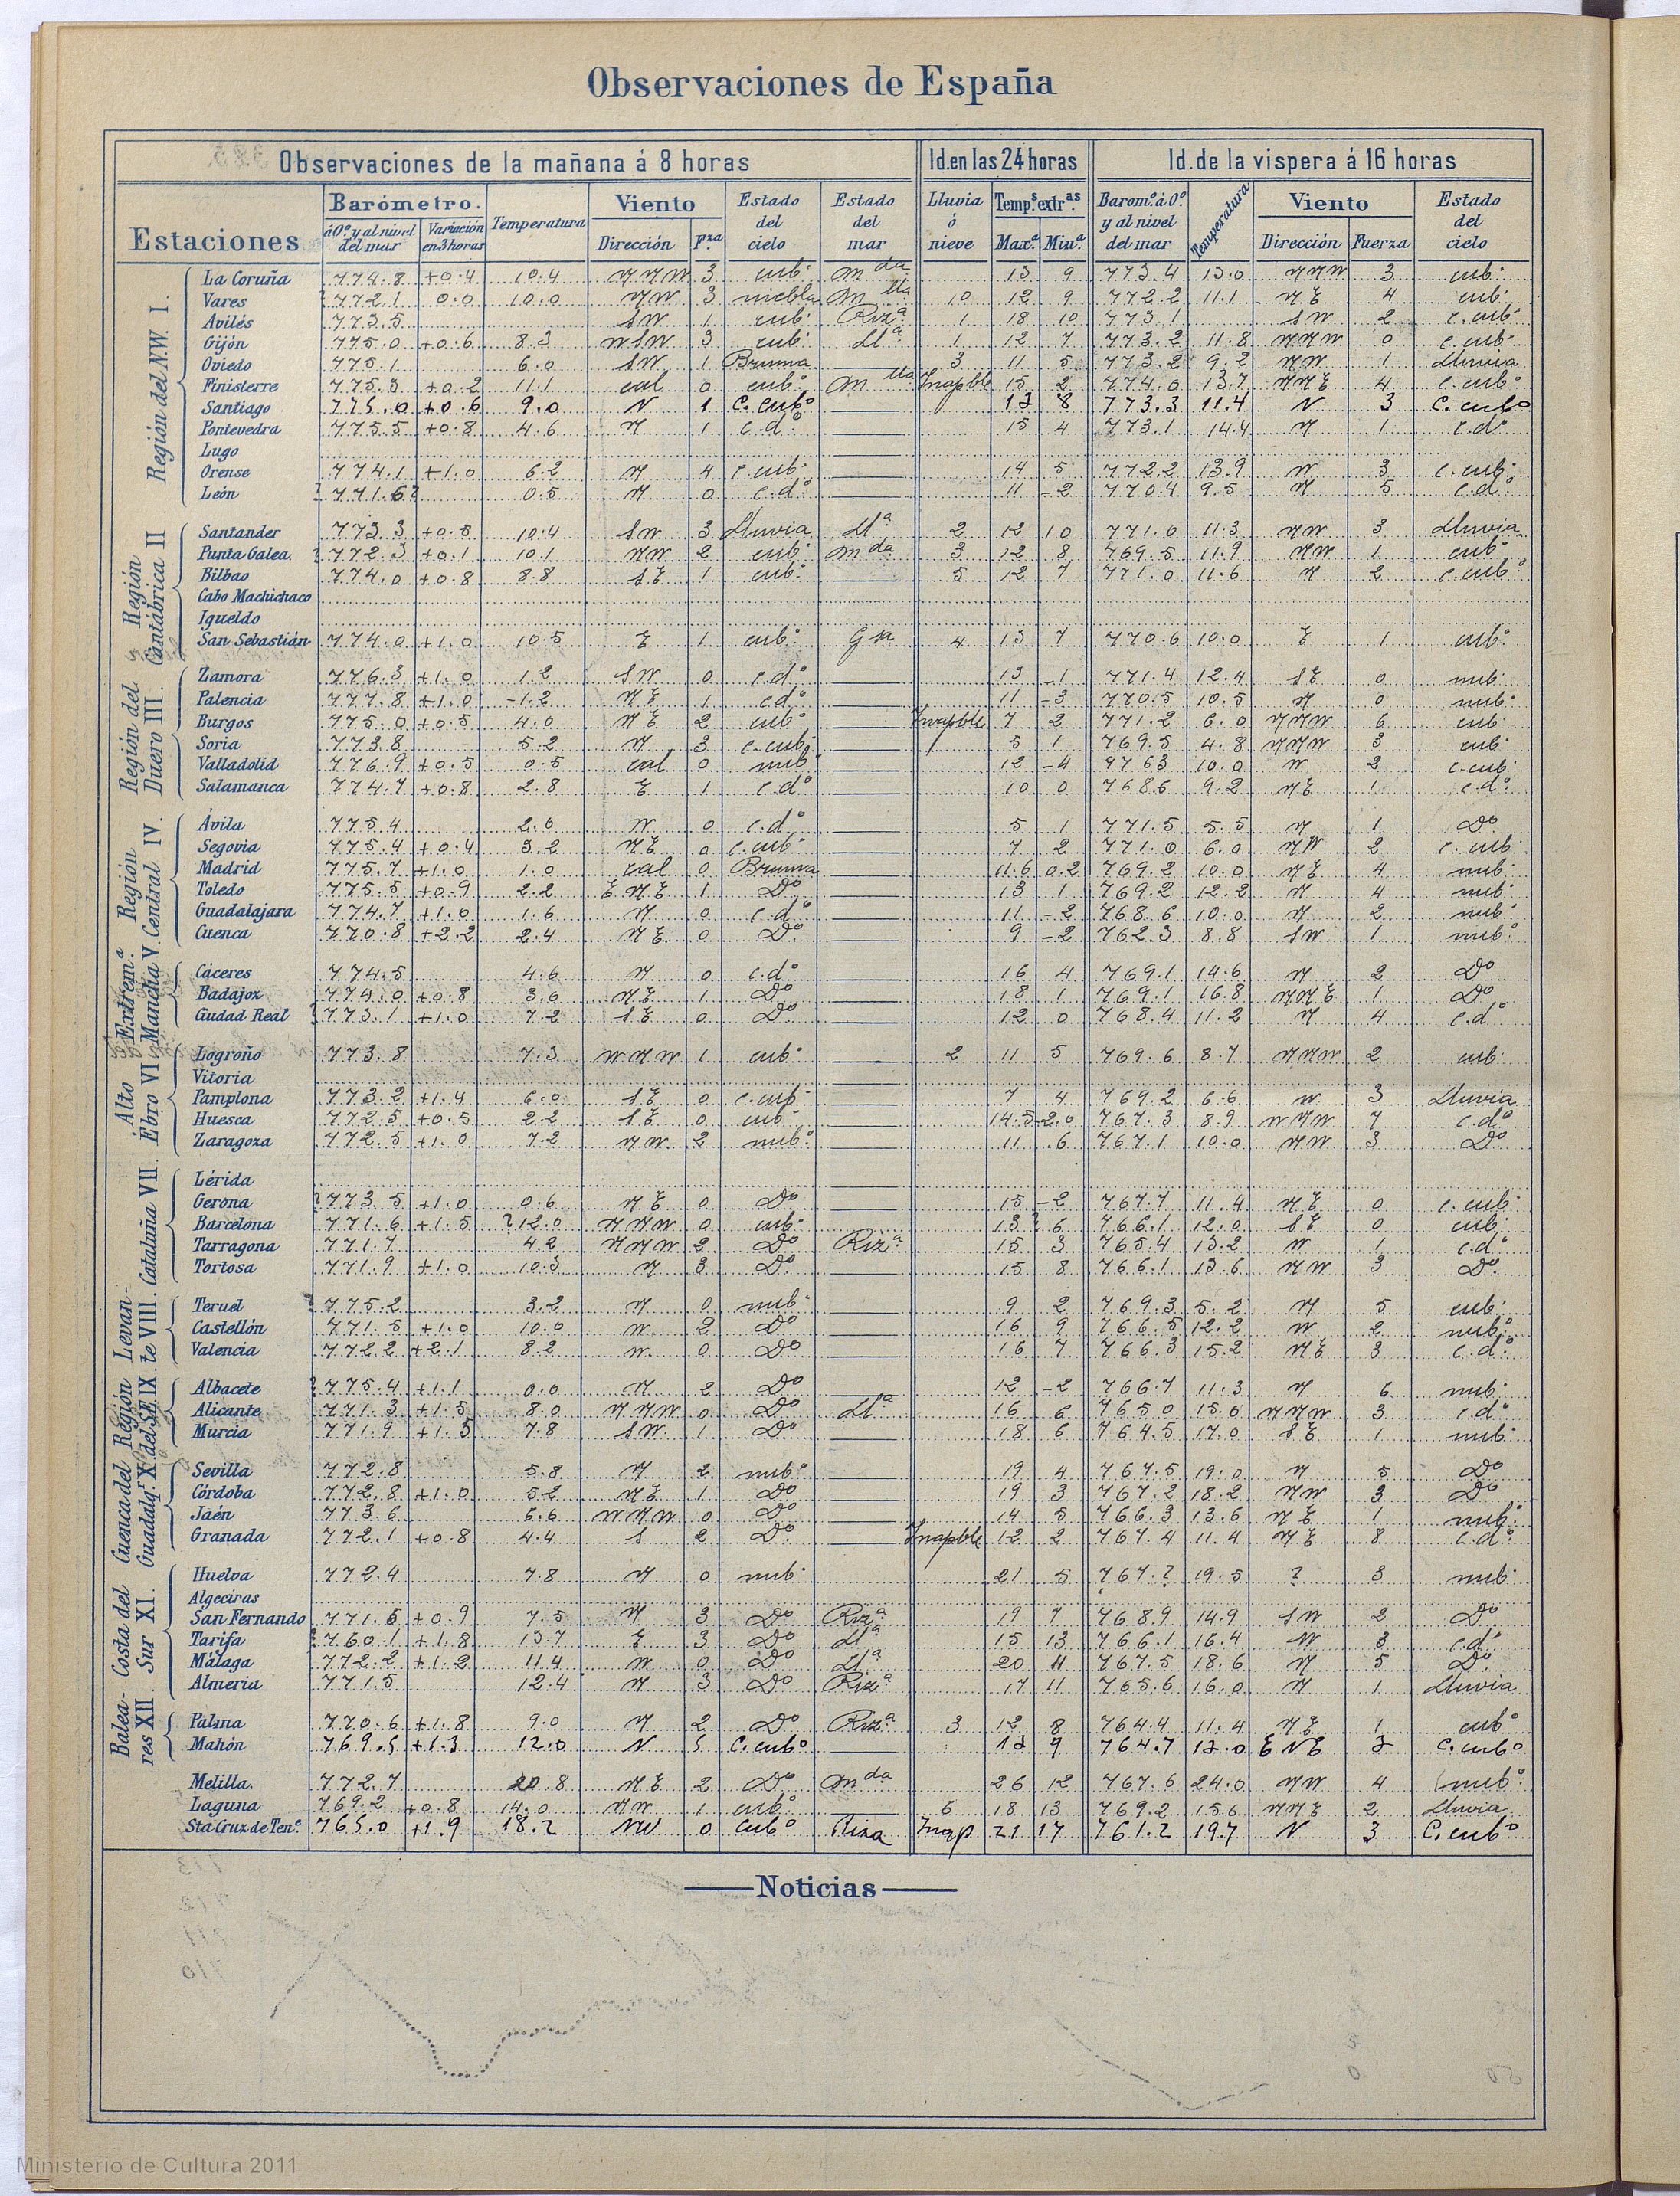 Observaciones de España
Observaciones de la mañana á 8 horas Id. en las 24 horas Id. de la vispera á 16 horas
Estaciones Barómetro. á 0º. y al nivel del mar Variación en 3 horas Temperatura Viento Dirección F.za Estado del cielo Estado del mar Lluvia ó nieve Temp.s extr.as Max.ª Min.ª Barom.º á 0º. y al nivel del mar Temperatura Viento Dirección Fuerza Estado del cielo
Región del N.W. I.
La Coruña 774.8 +0.4 10.4 NNW 3 cub.º Mda 13 9 773.4 13.0 NNW 3 cub.º
Vares ?772.1 0.0 10.0 NW 3 niebla Mlla 10 12 9 772.2 11.1 NE 4 cub.º
Avilés 773.5 SW 1 cub.º Riz.ª 1 18 10 773.1 SW 2 c. cub.º
Gijón 775.0 +0.6 8.3 WSW 3 cub.º Ll.ª 1 12 7 773.2 11.8 NNW 0 c. cub.º
Oviedo 775.1 6.0 SW 1 Bruma 3 11 5 773.2 9.2 NW 1 Lluvia
Finisterre 775.0 +0.2 11.1 cal 0 cub.º Mlla Inapble 15 2 774.0 13.7 NNE 4 c. cub.º
Santiago 775.0 +0.6 9.0 N 1 C. cubº 12 8 773.3 11.4 N 3 C. cubº
Pontevedra 775.5 +0.8 4.6 N 1 c. d.º 15 4 773.1 14.4 N 1 c. dº
Lugo
Orense 774.1 +1.0 6.2 N 4 c. cub.º 14 5 772.2 13.9 W 3 c. cub.º
León ?771.6? 0.5 N 0 c. d.º 11 -2 770.4 9.5 N 5 c. d.º
Región Cantábrica II
Santander 773.3 +0.5 10.4 SW 3 Lluvia Ll.ª 2 12 10 771.0 11.3 NW 3 Lluvia
Punta Galea. ?772.3 +0.1 10.1 NW 2 cub.º Mda 3 12 8 769.5 11.9 NW 1 cub.º
Bilbao 774.0 +0.8 8.8 SE 1 cub.º 5 12 7 771.0 11.6 N 2 c. cub.º
Cabo Machichaco
Igueldo
San Sebastián 774.0 +1.0 10.5 E 1 cub.º G sa 4 13 7 770.6 10.0 E 1 cub.º
Región del Duero III.
Zamora 776.3 +1.0 1.2 SW 0 c. d.º 13 -1 771.4 12.4 SE 0 nub.º
Palencia 777.8 +1.0 -1.2 NE 1 c dº 11 -3 770.5 10.5 N 0 nub.º
Burgos 775.0 +0.5 4.0 NE 2 cub.º Inapble 7 2 771.2 6.0 NNW 6 cub.º
Soria 773.8 5.2 N 3 c. cub.º 5 1 769.5 4.8 NNW 3 cub.º
Valladolid 776.9 +0.5 0.5 cal 0 nub.º 12 -4 9763 10.0 W 2 c. cub.º
Salamanca 774.7 +0.8 2.8 E 1 c. d.º 10 0 768.6 9.2 NE 1 c. d.º
Región Central IV.
Ávila 775.4 2.0 W 0 c. d.º 5 1 771.5 5.5 N 1 Dº
Segovia 775.4 +0.4 3.2 NE 0 c. cub.º 7 2 771.0 6.0 NW 2 c. cub.º
Madrid 775.7 +1.0 1.0 cal 0 Bruma 11.6 0.2 769.2 10.0 NE 4 nub.º
Toledo 775.5 +0.9 2.2 ENE 1 Dº 13 1 769.2 12.2 N 4 nub.º
Guadalajara 774.7 +1.0 1.6 N 0 c. d.º 11 -2 768.6 10.0 N 2 nub.º
Cuenca 770.8 +2.2 2.4 NE 0 Dº 9 -2 762.3 8.8 SW 1 nub.º
Extrem.ª Mancha V.
Cáceres 774.5 4.6 N 0 c. d.º 16 4 769.1 14.6 N 2 Dº
Badajoz 774.0 +0.8 3.6 NE 1 Dº 18 1 769.1 16.8 NNE 1 Dº
Ciudad Real ?773.1 +1.0 7.2 SE 0 Dº 12 0 768.4 11.2 N 4 c. dº
Alto Ebro VI
Logroño 773.8 7.3 WNW 1 cub.º 2 11 5 769.6 8.7 NNW 2 cub.
Vitoria
Pamplona 773.2 +1.4 6.0 SE 0 c. cub.º 7 4 769.2 6.6 W 3 Lluvia
Huesca 772.5 +0.5 2.2 SE 0 cub.º 14.5 -2.0 767.3 8.9 WNW 7 c. dº
Zaragoza 772.5 +1.0 7.2 NW 2 nub.º 11 6 767.1 10.0 NW 3 Dº
Cataluña VII.
Lérida
Gerona ?773.5 +1.0 0.6 NE 0 Dº 15 -2 767.7 11.4 NE 0 c. cub.º
Barcelona 771.6 +1.5 ?12.0 NNW 0 cub.º 13? 6 766.1 12.0 SE 0 cub.º
Tarragona 771.7 4.2 NNW 2 Dº Riz.ª 15 3 765.4 13.2 W 1 c. d.º
Tortosa 771.9 +1.0 10.5 N 3 Dº 15 8 766.1 13.6 NW 3 Dº
Levante VIII.
Teruel ?775.2 3.2 N 0 nub.º 9 2 769.3 5.2 N 5 cub.º
Castellón 771.5 +1.0 10.0 W 2 Dº 16 9 766.5 12.2 W 2 nub.º
Valencia 772.2 +2.1 8.2 W 0 Dº 16 7 766.3 15.2 NE 3 c. d.º
Región del SE IX.
Albacete ?775.4 +1.1 0.0 N 2 Dº 12 -2 766.7 11.3 N 6 nub.º
Alicante 771.3 +1.5 8.0 NNW 0 Dº Ll.ª 16 6 765.0 15.0 NNW 3 c. d.º
Murcia 771.9 +1.5 7.8 SW 1 Dº 18 6 764.5 17.0 SE 1 nub.º
Cuenca del Guadalq.r X.
Sevilla 772.8 5.8 N 2 nub.º 19 4 767.5 19.0 N 5 Dº
Córdoba 772.8 +1.0 5.2 NE 1 Dº 19 3 767.2 18.2 NW 3 Dº
Jaén 773.6 6.6 WNW 0 Dº 14 5 766.3 13.6 NE 1 nub.º
Granada 772.1 +0.8 4.4 S 2 Dº Inapble 12 2 767.4 11.4 NE 8 c. d.º
Costa del Sur XI.
Huelva 772.4 7.8 N 0 nub.º 21 5 767.? 19.5 ? 3 nub.º
Algeciras
San Fernando 771.6 +0.9 7.5 N 3 Dº Riz.ª 19 7 768.9 14.9 SW 2 Dº
Tarifa ?760.1 +1.8 13.7 E 3 Dº Ll.ª 15 13 766.1 16.4 W 3 c. dº
Málaga 772.2 +1.2 11.4 W 0 Dº Ll.ª 20 11 767.5 18.6 N 5 Dº
Almeria 771.5 12.4 N 3 Dº Riz.ª 17 11 765.6 16.0 N 1 Lluvia
Baleares XII
Palma 770.6 +1.8 9.0 N 2 Dº Riz.ª 3 12 8 764.4 11.4 NE 1 cubº
Mahón 769.5 +1.3 12.0 N 5 C. cubº 12 9 764.7 12.0 ENE 7 C. cubº
Melilla. 772.7 20.8 NE 2 Dº Mda 26 12 767.6 24.0 NW 4 nub.º
Laguna 769.2 +0.8 14.0 NW 1 cub.º 6 18 13 769.2 15.6 NNE 2 Lluvia
Sta Cruz de Ten.e 765.0 +1.9 18.2 NW 0 cubº Riza Inap 21 17 761.2 19.7 N 3 C. cubº
Noticias
Ministerio de Cultura 2011